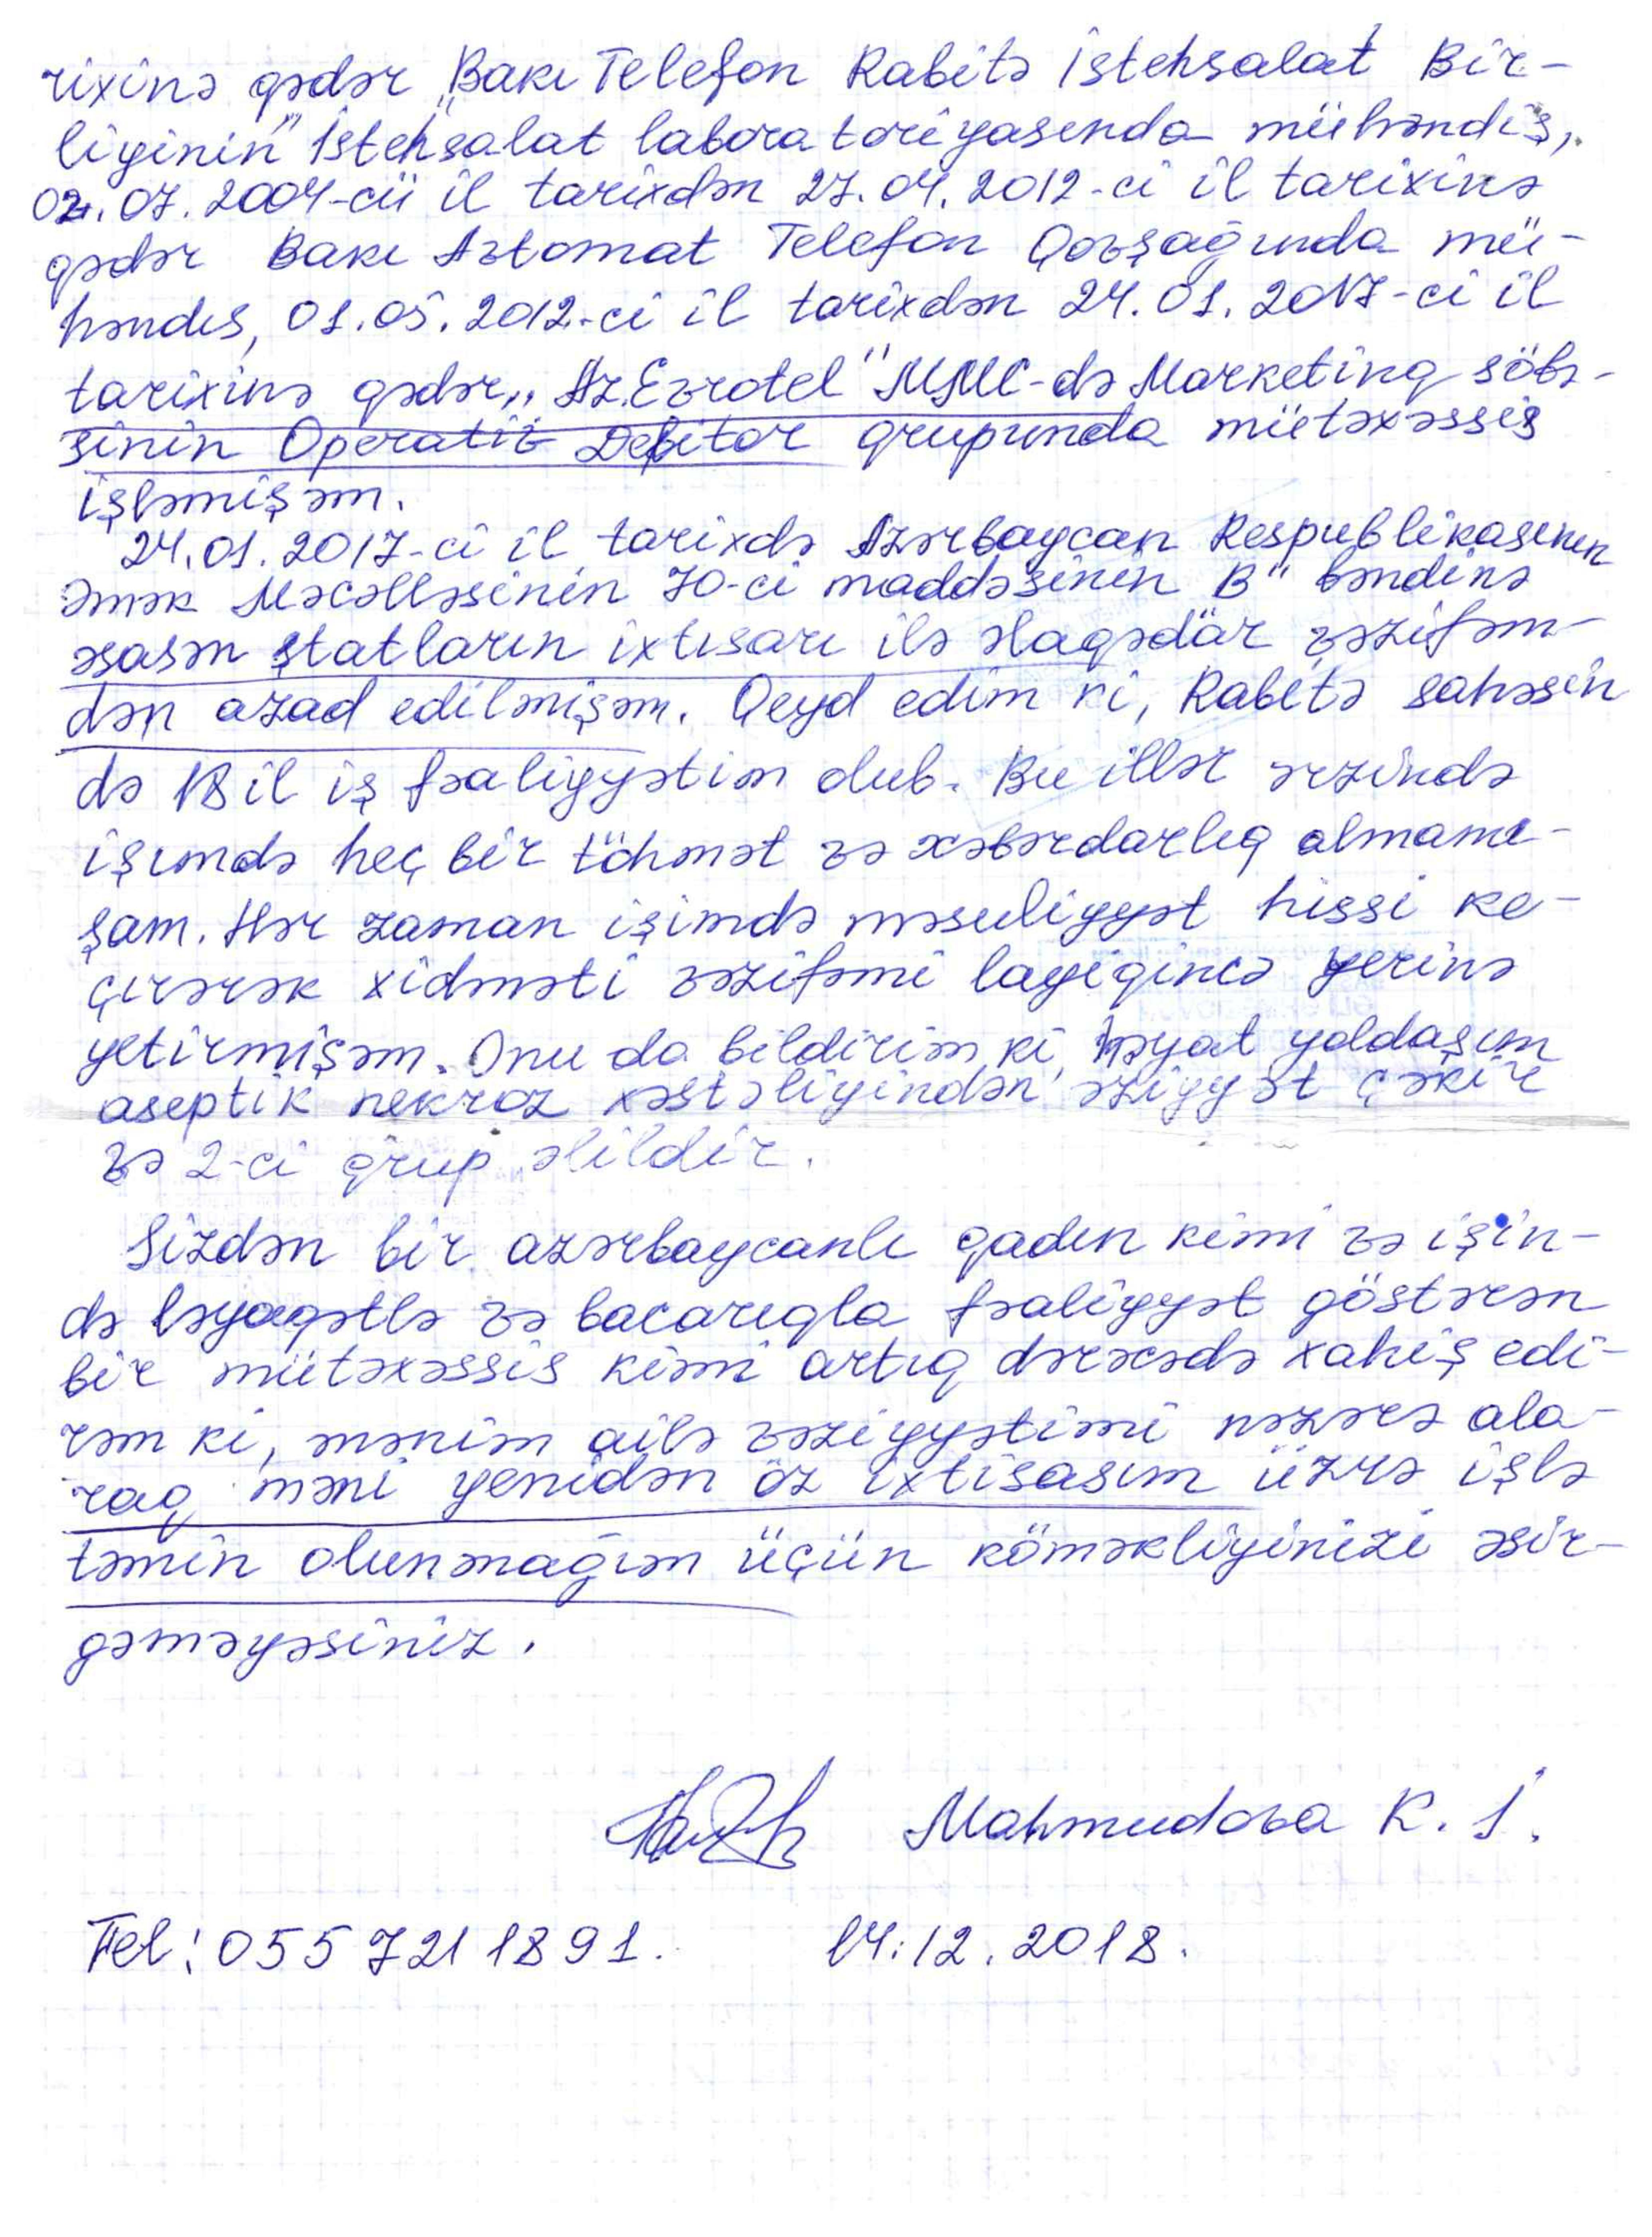 rixinə qədər "Bakı Telefon Rabitə İstehsalat Bir-
liyinin" İstehsalat laboratoriyasında mühəndis,
02.07.2004-cü il tarixdən 27.04.2012-ci il tarixinə
qədər Bakı Avtomat Telefon Qovşağında mü-
həndis, 01.05.2012-ci il tarixdən 24.01.2017-ci il
tarixinə qədər "Az.Evrotel" MMC-də Marketinq şöbə-
sinin Operativ Debitor qrupunda mütəxəssis
işləmişəm.
24.01.2017-ci il tarixdə Azərbaycan Respublikasının
Əmək Məcəlləsinin 70-ci maddəsinin B" bəndinə
əsasən ştatların ixtisarı ilə əlaqədar vəzifəm-
dən azad edilmişəm. Qeyd edim ki, Rabitə sahəsin
də 18 il iş fəaliyyətim olub. Bu illər ərzində
işımdə heç bir töhmət və xəbərdarlıq almamı-
şam. Hər zaman işimdə məsuliyyət hissi ke-
çirərək xidməti vəzifəmi layiqincə yerinə
yetirmişəm. Onu da bildirim ki, həyat yoldaşım
aseptik nekroz xəstəliyindən əziyyət çəkir
və 2-ci qrup əlildir.
Sizdən bir azərbaycanlı qadın kimi və işin-
də ləyaqətlə və bacarıqla fəaliyyət göstərən
bir mütəxəssis kimi artıq dərəcədə xahiş edi-
rəm ki, mənim ailə vəziyyətimi nəzərə ala-
raq məni yenidən öz ixtisasım üzrə işlə
təmin olunmağım üçün köməkliyinizi əsir-
gəməyəsiniz.
Mahmudova K. İ.
Tel: 055 721 18 91. 14.12.2018.